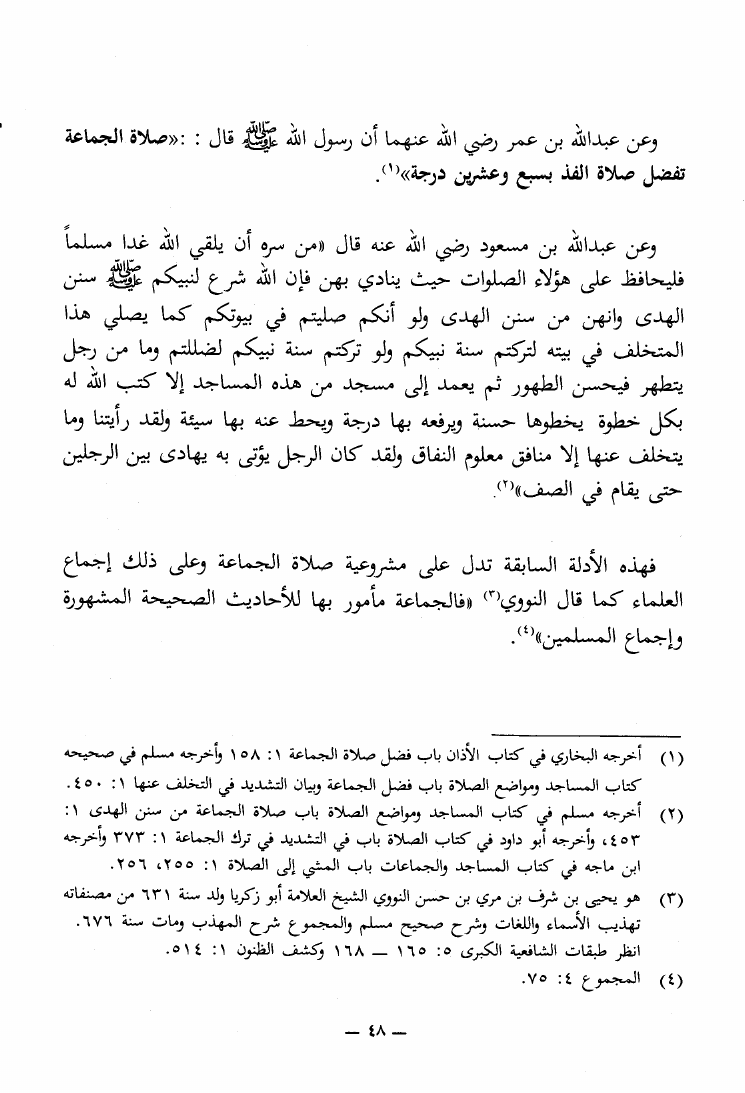 وعن عبدالله بن عمر رضي الله عنهما أن رسول الله ﷺ قال : :«صلاة الجماعة
تفضل صلاة الفذ بسبع وعشرين درجة»(١).
وعن عبدالله بن مسعود رضي الله عنه قال «من سره أن يلقي الله غدا مسلماً
فليحافظ على هؤلاء الصلوات حيث ينادي بهن فإن الله شرع لنبيكم ﷺ سنن
الهدى وانهن من سنن الهدى ولو أنكم صليتم في بيوتكم كما يصلي هذا
المتخلف في بيته لتركتم سنة نبيكم ولو تركتم سنة نبيكم لضللتم وما من رجل
يتطهر فيحسن الطهور ثم يعمد إلى مسجد من هذه المساجد إلا كتب الله له
بكل خطوة يخطوها حسنة ويرفعه بها درجة ويحط عنه بها سيئة ولقد رأيتنا وما
يتخلف عنها إلا منافق معلوم النفاق ولقد كان الرجل يؤتى به يهادى بين الرجلين
حتى يقام في الصف»(٢).
فهذه الأدلة السابقة تدل على مشروعية صلاة الجماعة وعلى ذلك إجماع
العلماء كما قال النووي(٣) «فالجماعة مأمور بها للأحاديث الصحيحة المشهورة
وإجماع المسلمين»(٤).
(١) أخرجه البخاري في كتاب الأذان باب فضل صلاة الجماعة ١: ١٥٨ وأخرجه مسلم في صحيحه
كتاب المساجد ومواضع الصلاة باب فضل الجماعة وبيان التشديد في التخلف عنها ١: ٤٥٠.
(٢) أخرجه مسلم في كتاب المساجد ومواضع الصلاة باب صلاة الجماعة من سنن الهدى ١:
٤٥٣، وأخرجه أبو داود في كتاب الصلاة باب في التشديد في ترك الجماعة ١: ٣٧٣ وأخرجه
ابن ماجه في كتاب المساجد والجماعات باب المشي إلى الصلاة ١: ٢٥٥، ٢٥٦.
(٣) هو يحيى بن شرف بن مري بن حسن النووي الشيخ العلامة أبو زكريا ولد سنة ٦٣١ من مصنفاته
تهذيب الأسماء واللغات وشرح صحيح مسلم والمجموع شرح المهذب ومات سنة ٦٧٦.
انظر طبقات الشافعية الكبرى ٥: ١٦٥ — ١٦٨ وكشف الظنون ١: ٥١٤.
(٤) المجموع ٤: ٧٥.
— ٤٨ —